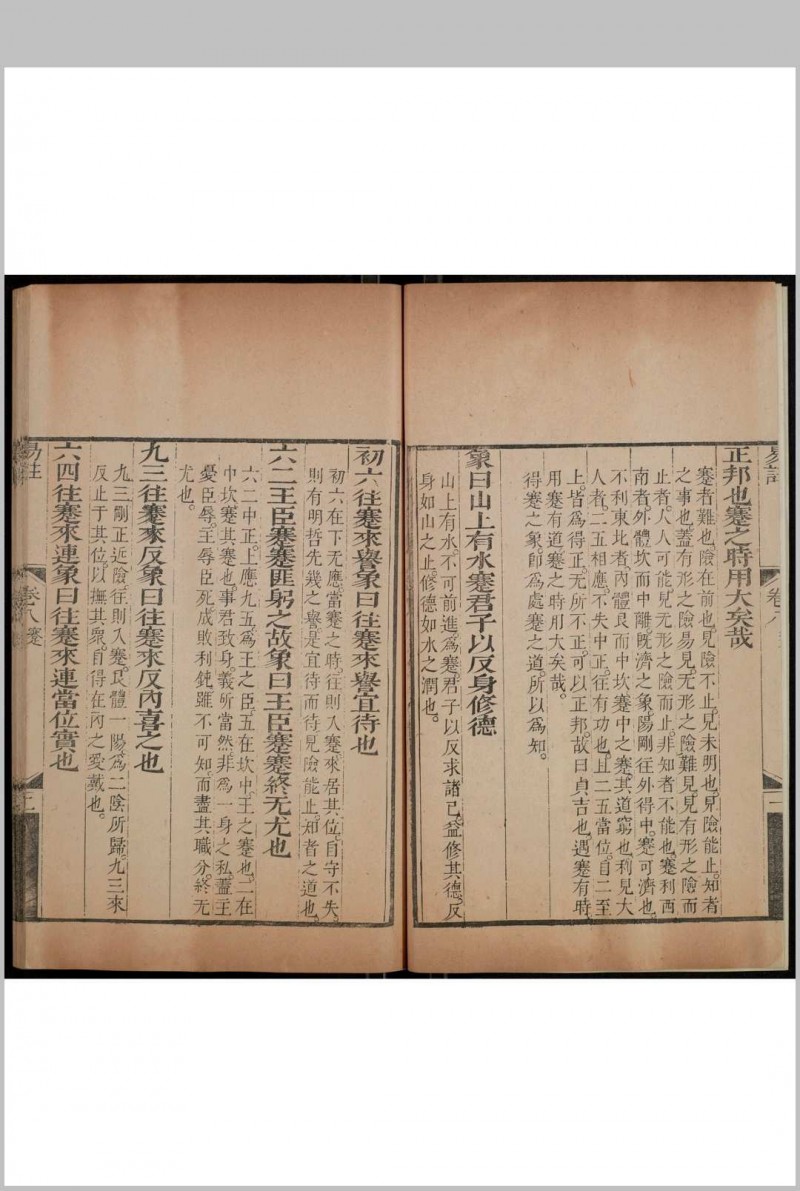 易註
卷八
正邦也蹇之時用大矣哉
蹇者難也險在前也見險不止見未明也見險能止知者
之事也蓋有形之險易見无形之險難見見有形之險而
止者人人可能見无形之險而止非知者不能也蹇利西
南者外體坎而中離旣濟之象陽剛往外得中蹇可濟也
不利東北者內體艮而中坎蹇中之蹇其道窮也利見大
人者二五相應不失中正往有功也且二五當位自二至
上皆爲得正无所不正可以正邦故曰貞吉也遇蹇有時
用蹇有道蹇之時用大矣哉
得蹇之象卽爲處蹇之道所以爲知
象曰山上有水蹇君子以反身修德
山上有水不可前進爲蹇君子以反求諸已益修其德反
身如山之止修德如水之潤也
初六往蹇來譽象曰往蹇來譽宜待也
初六在下无應當蹇之時往則入蹇來居其位自守不失
則有明哲先幾之譽是宜待而待見險能止知者之道也
六二王臣蹇蹇匪躬之故象曰王臣蹇蹇終无尤也
六二中正上應九五爲王之臣五在坎中王之蹇也二在
中坎蹇其蹇也事君致身義所當然非爲一身之私蓋主
憂臣辱主辱臣死成敗利鈍雖不可知而盡其職分終无
尤也
九三往蹇來反象曰往蹇來反內喜之也
九三剛正近險往則入蹇艮體一陽爲二陰所歸九三來
反止于其位以撫其衆自得在內之愛戴也
六四往蹇來連象曰往蹇來連當位實也
易註
卷八蹇